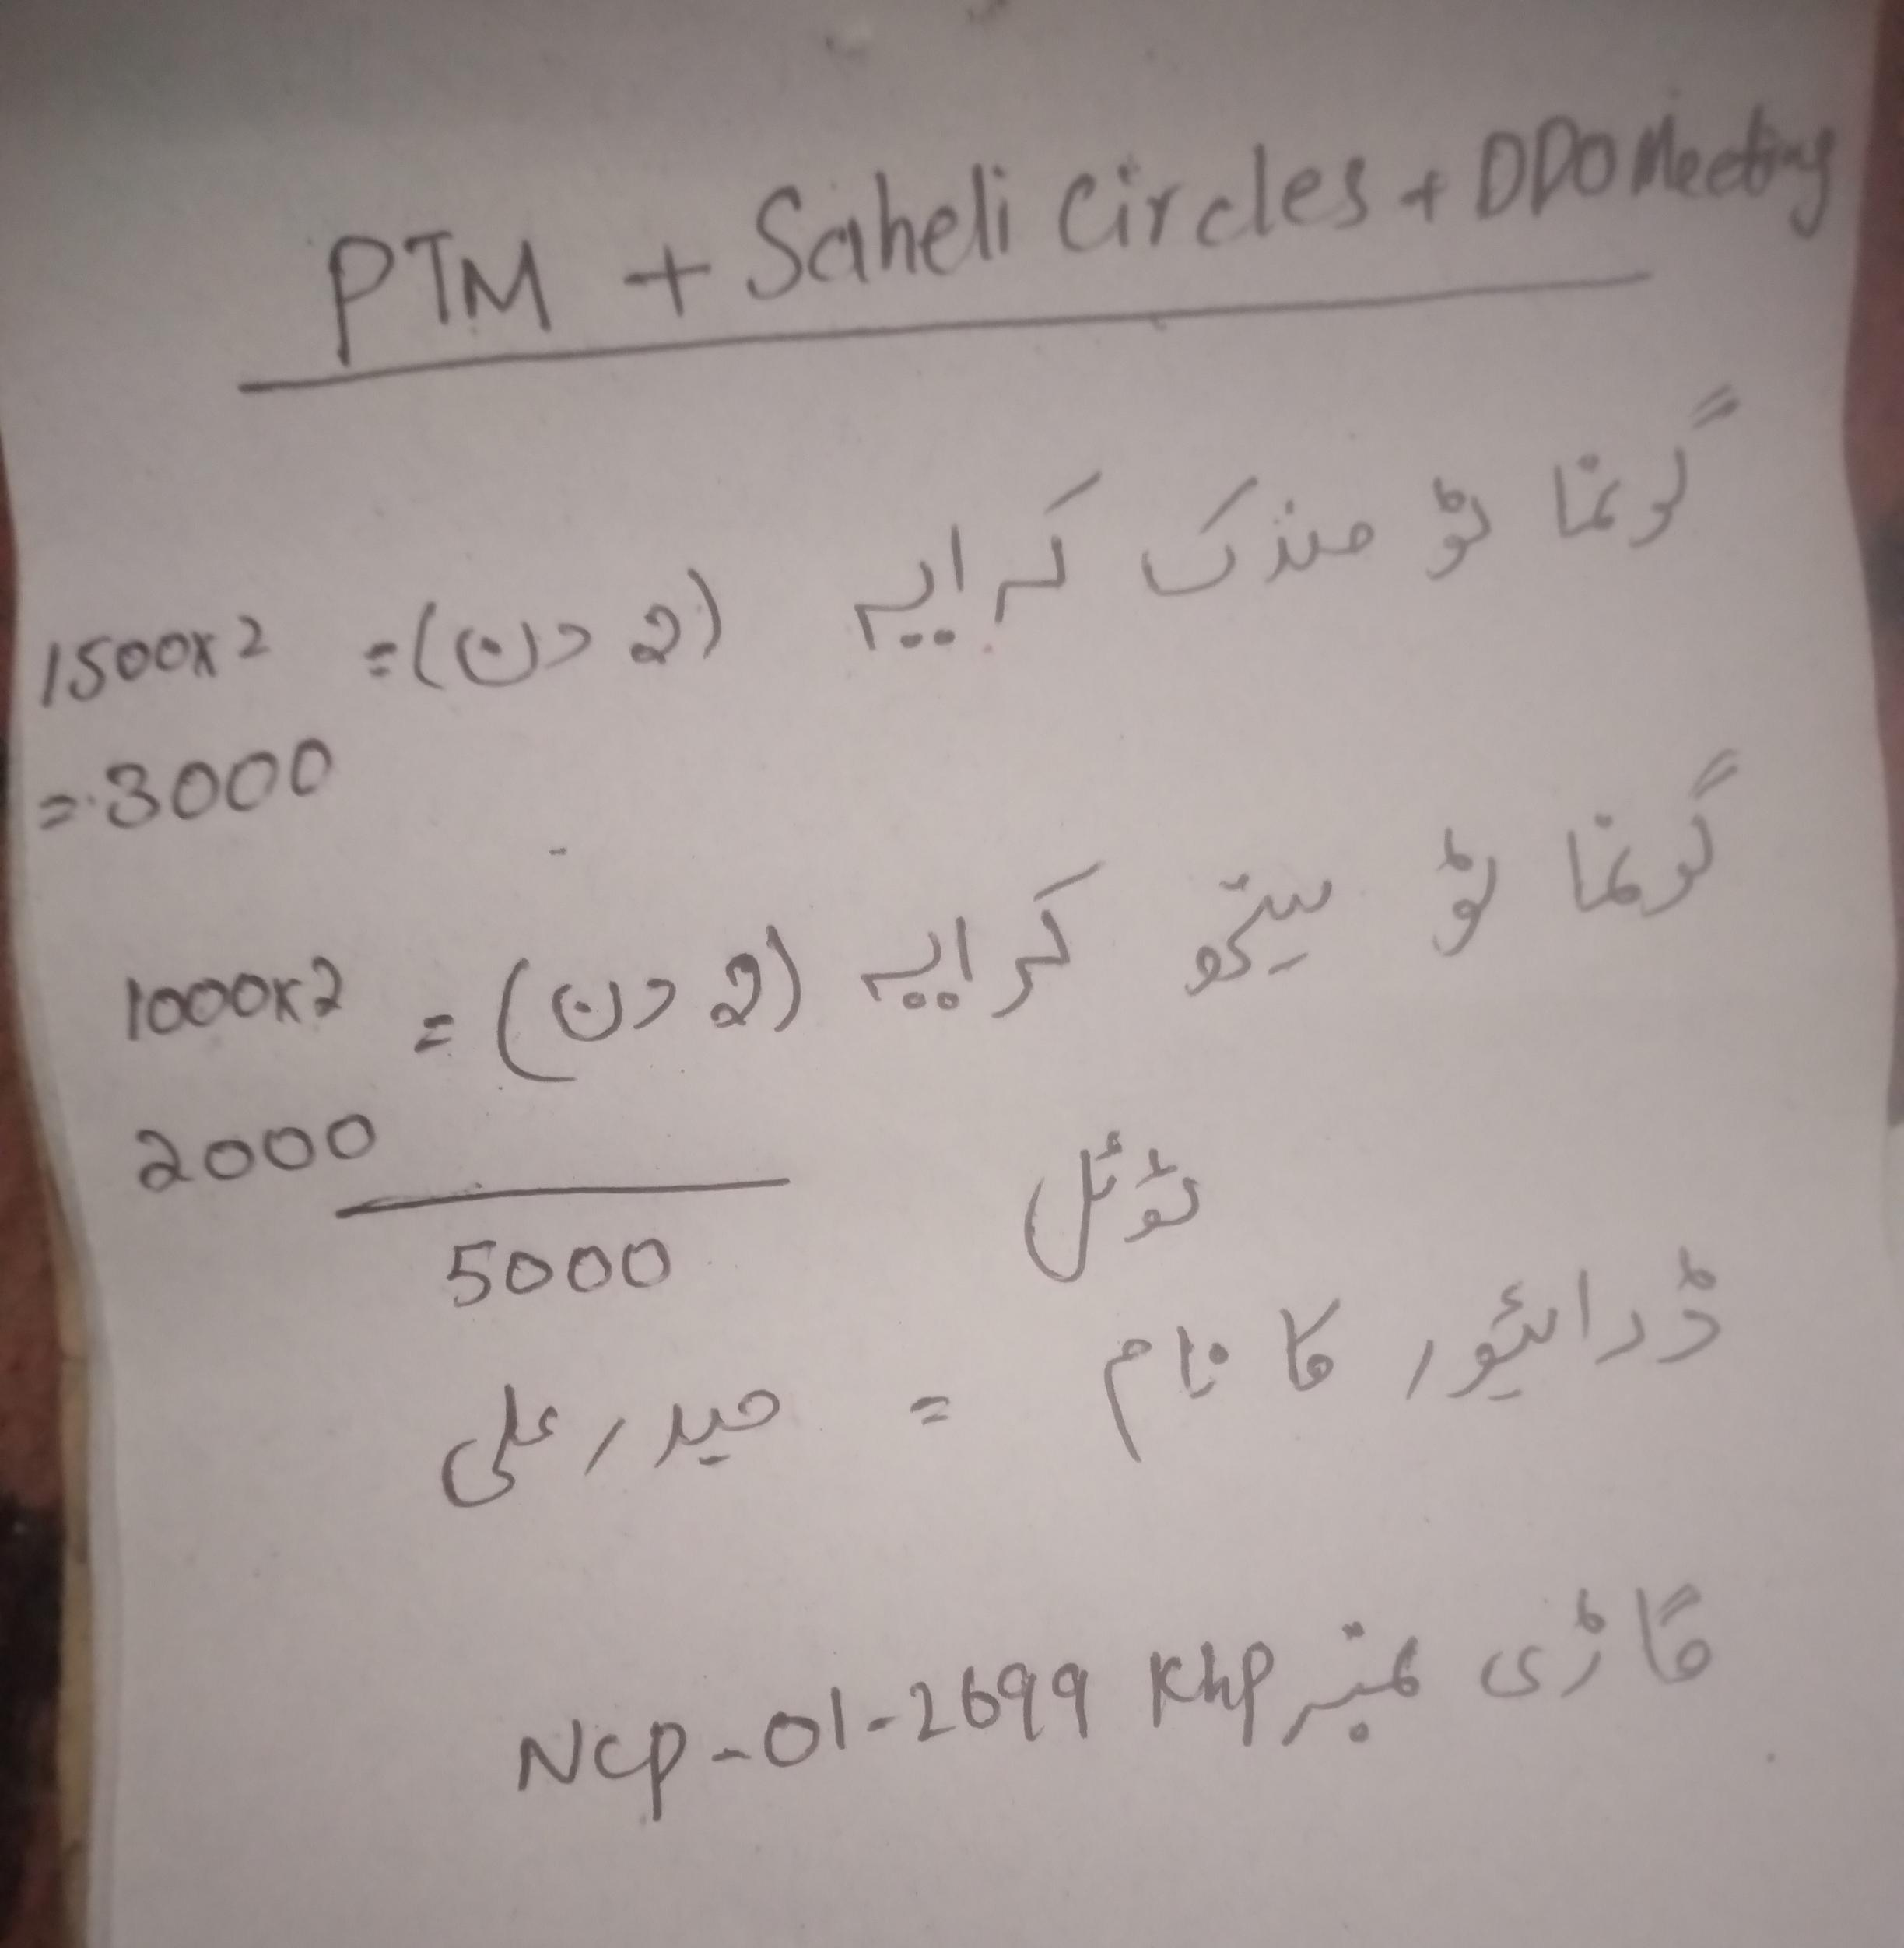 PTM + Saheli Circles + DDO Meeting
گونما ٹو منڈک کرایہ (2 دن) = 1500x2
= 3000
گونما ٹو سیگو کرایہ (2 دن) = 1000x2
2000
ٹوٹل 5000
ڈرائیور کا نام = حیدر علی
گاڑی نمبر Ncp-01-2699 Khp